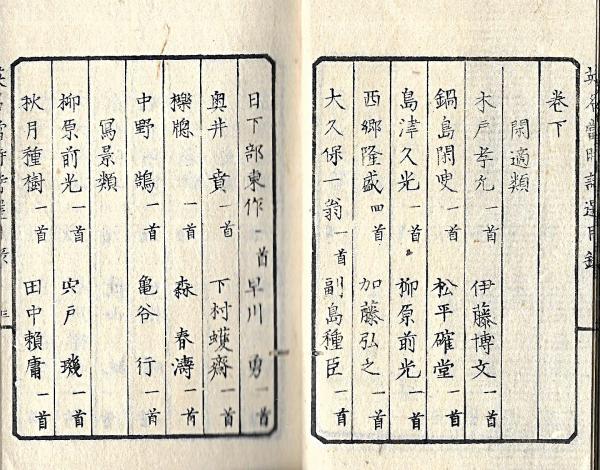 卷下
閑適類
木戸孝允 伊藤博文 一首
鍋島閑叟 一首 松平確堂 一首
島津久光 一首 柳原前光 一首
西郷隆盛 四首 加藤弘之 一首
大久保一翁 一首 副島種臣 一首
日下部東作 一首 早川勇 一首
奥井賁 一首 下村蠖齋 一首
櫟牕 一首 森春濤 一首
中野鵠 一首 亀谷行 一首
冩景類
柳原前光 一首 宍戸璣 一首
秋月種樹 一首 田中頼庸 一首